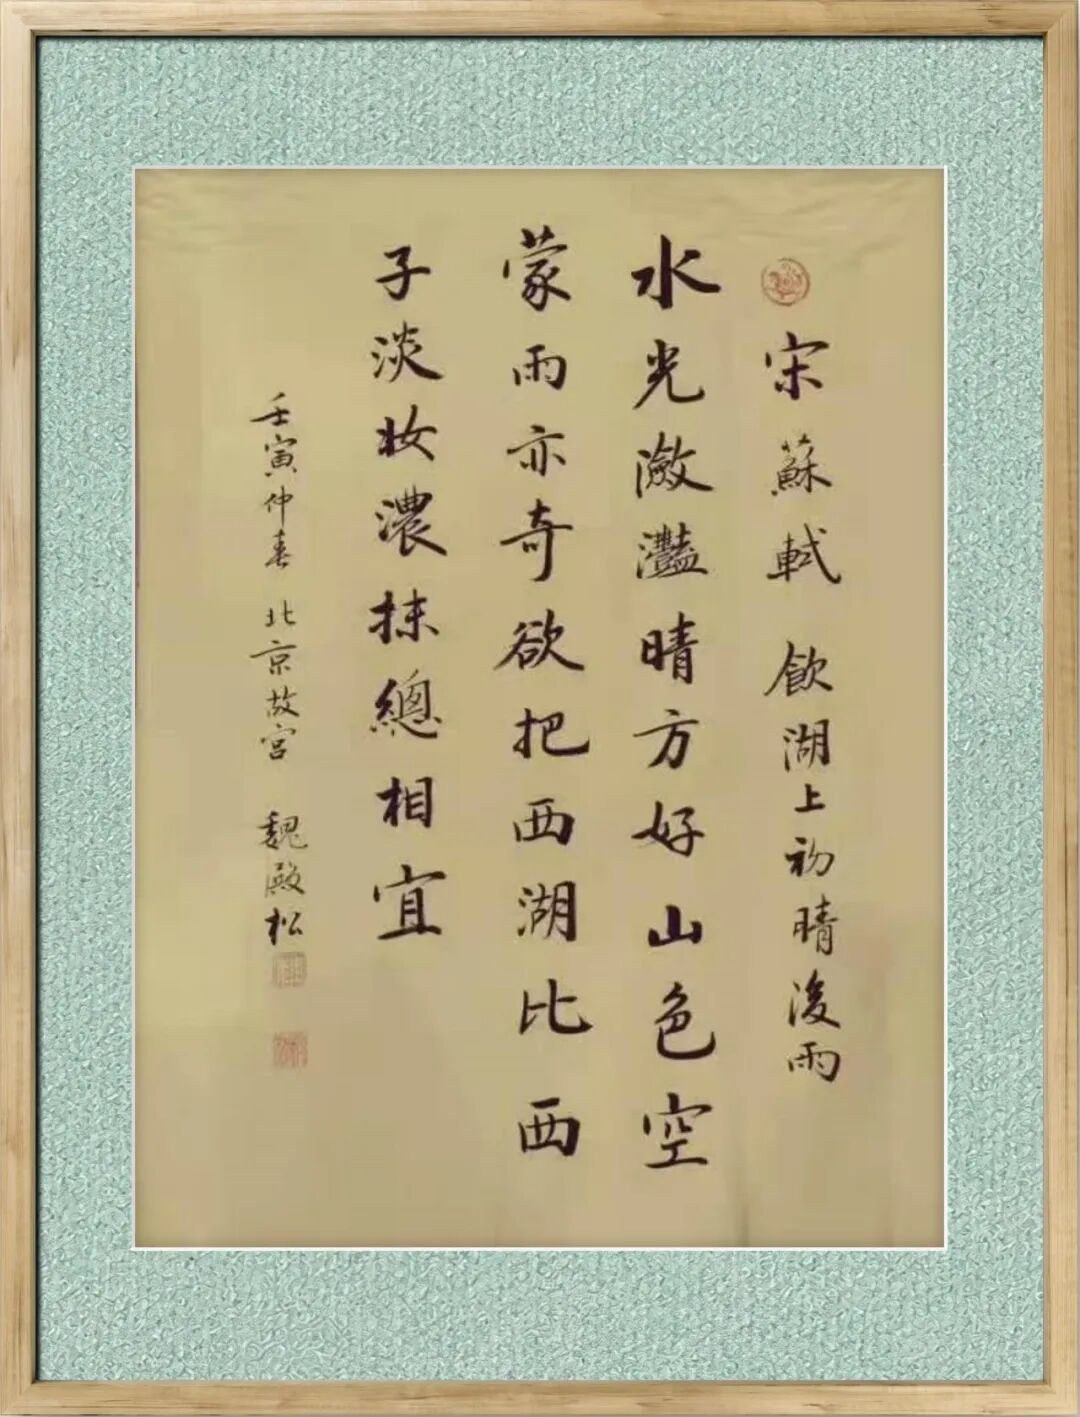 宋蘇軾 飲湖上初晴後雨
水光瀲灩晴方好山色空
蒙雨亦奇欲把西湖比西
子淡妝濃抹總相宜
壬寅仲春 北京故宮 魏殿松